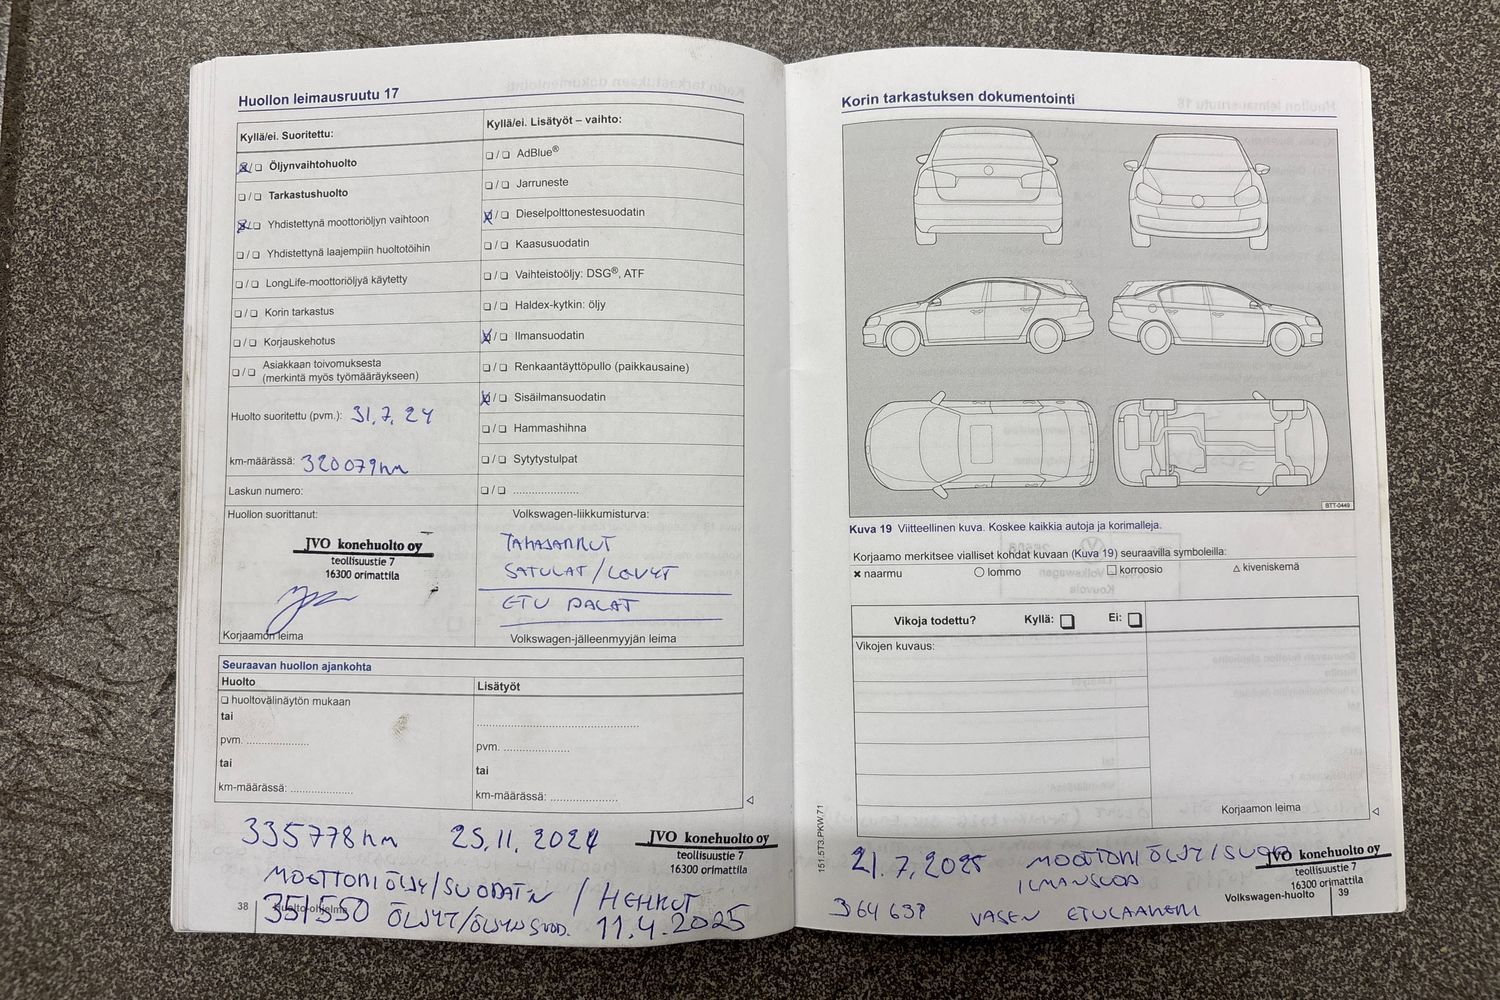 Huollon leimausruutu 17
Kyllä/ei. Suoritettu:
Öljynvaihtohuolto
Tarkastushuolto
Yhdistettynä moottoriöljyn vaihtoon
Yhdistettynä laajempiin huoltotöihin
LongLife-moottoriöljyä käytetty
Korin tarkastus
Korjauskehotus
Asiakkaan toivomuksesta
(merkintä myös työmääräykseen)
Huolto suoritettu (pvm.): 31.7.24
km-määrässä: 320079km
Laskun numero:
Huollon suorittanut:
JVO konehuolto oy
teollisuustie 7
16300 orimattila
Korjaamon leima
Kyllä/ei. Lisätyöt – vaihto:
AdBlue®
Jarruneste
Dieselpolttonestesuodatin
Kaasusuodatin
Vaihteistoöljy: DSG®, ATF
Haldex-kytkin: öljy
Ilmansuodatin
Renkaantäyttöpullo (paikkausaine)
Sisäilmansuodatin
Hammashihna
Sytytystulpat
Volkswagen-liikkumisturva:
TAKAJARRUT
SATULAT/LEVYT
ETU PALAT
Volkswagen-jälleenmyyjän leima
Seuraavan huollon ajankohta
Huolto
huoltovälinäytön mukaan
tai
pvm.
tai
km-määrässä:
Lisätyöt
pvm.
tai
km-määrässä:
335778km 25.11.2024
JVO konehuolto oy
teollisuustie 7
16300 orimattila
MOOTTORIÖLJY/SUODATIN / HEHKUT
351550 ÖLJYT/ÖLJYNSUOD. 11.4.2025
38 Huolto-ohjelma
Korin tarkastuksen dokumentointi
BTT-0449
Kuva 19 Viitteellinen kuva. Koskee kaikkia autoja ja korimalleja.
Korjaamo merkitsee vialliset kohdat kuvaan (Kuva 19) seuraavilla symboleilla:
naarmu lommo korroosio kiveniskemä
Vikoja todettu? Kyllä: Ei:
Vikojen kuvaus:
Korjaamon leima
151.5T3.PKW.71
21.7.2025 MOOTTORIÖLJY/SUOD
ILMANSUOD
JVO konehuolto oy
teollisuustie 7
16300 orimattila
364637 VASEN ETULAAKERI
Volkswagen-huolto 39